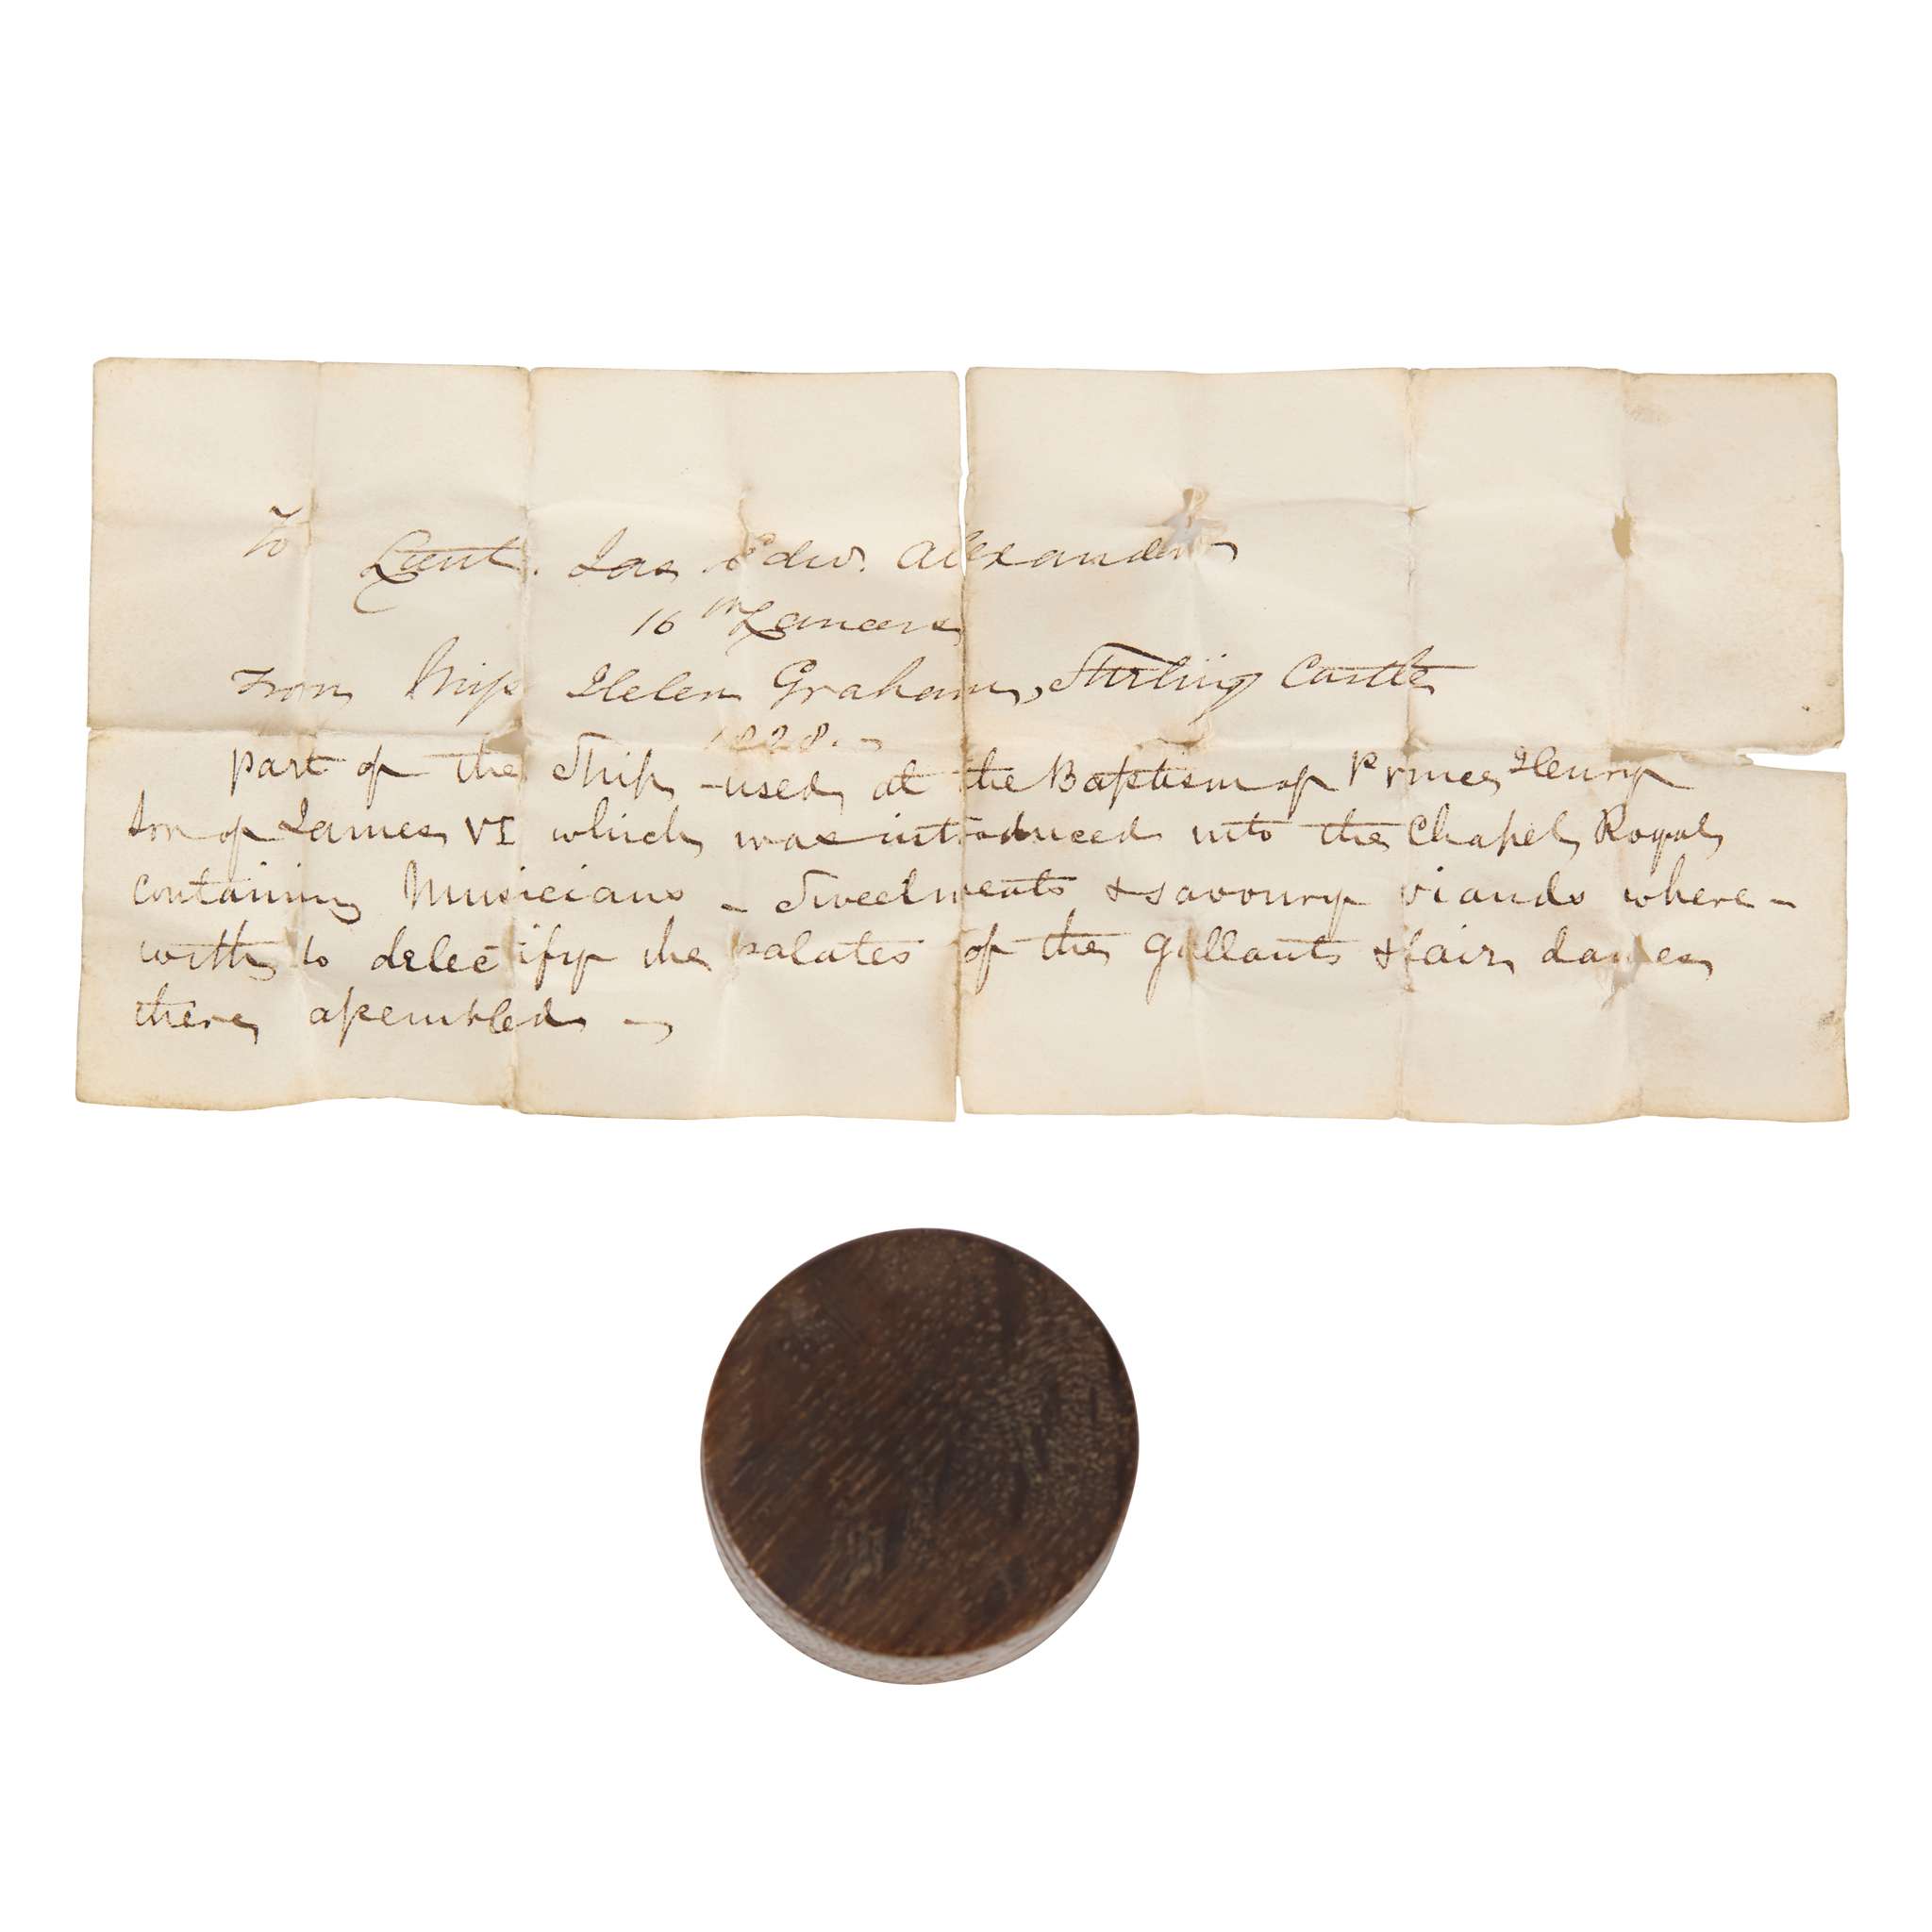 To
Lieut. Jas Edw. Alexander
16th Lancers
From Miss Helen Graham, Stirling Castle
1828. -
part of the Ship - used at the Baptism of Prince Henry
son of James VI which was introduced into the Chapel Royal
containing Musicians - Sweetmeats & savoury viands where-
with to delectify the palates of the gallants & fair dames
there assembled -